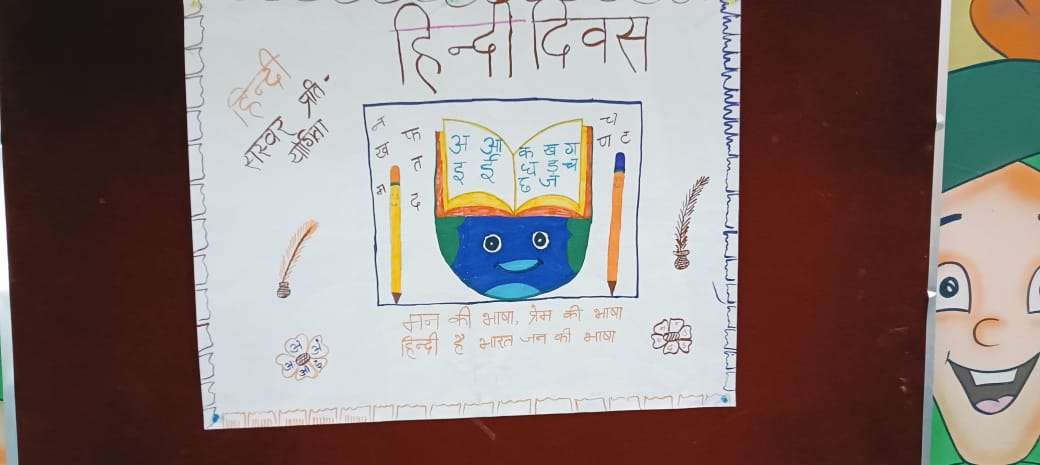 हिन्दी दिवस
हिन्दी
सस्वर प्रति-
योगिता
न
ख
फ
त
द
अ आ
इ ई
क ख ग
घ ङ च
छ ज
च
ण ट
मन की भाषा, प्रेम की भाषा
हिन्दी है भारत जन की भाषा